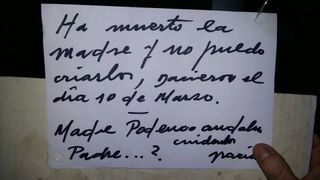 Ha muerto la
madre y no puedo
criarlos, nacieron el
día 10 de Marzo.
Madre Podenco andaluz
cuidarlos
Padre...? gracias